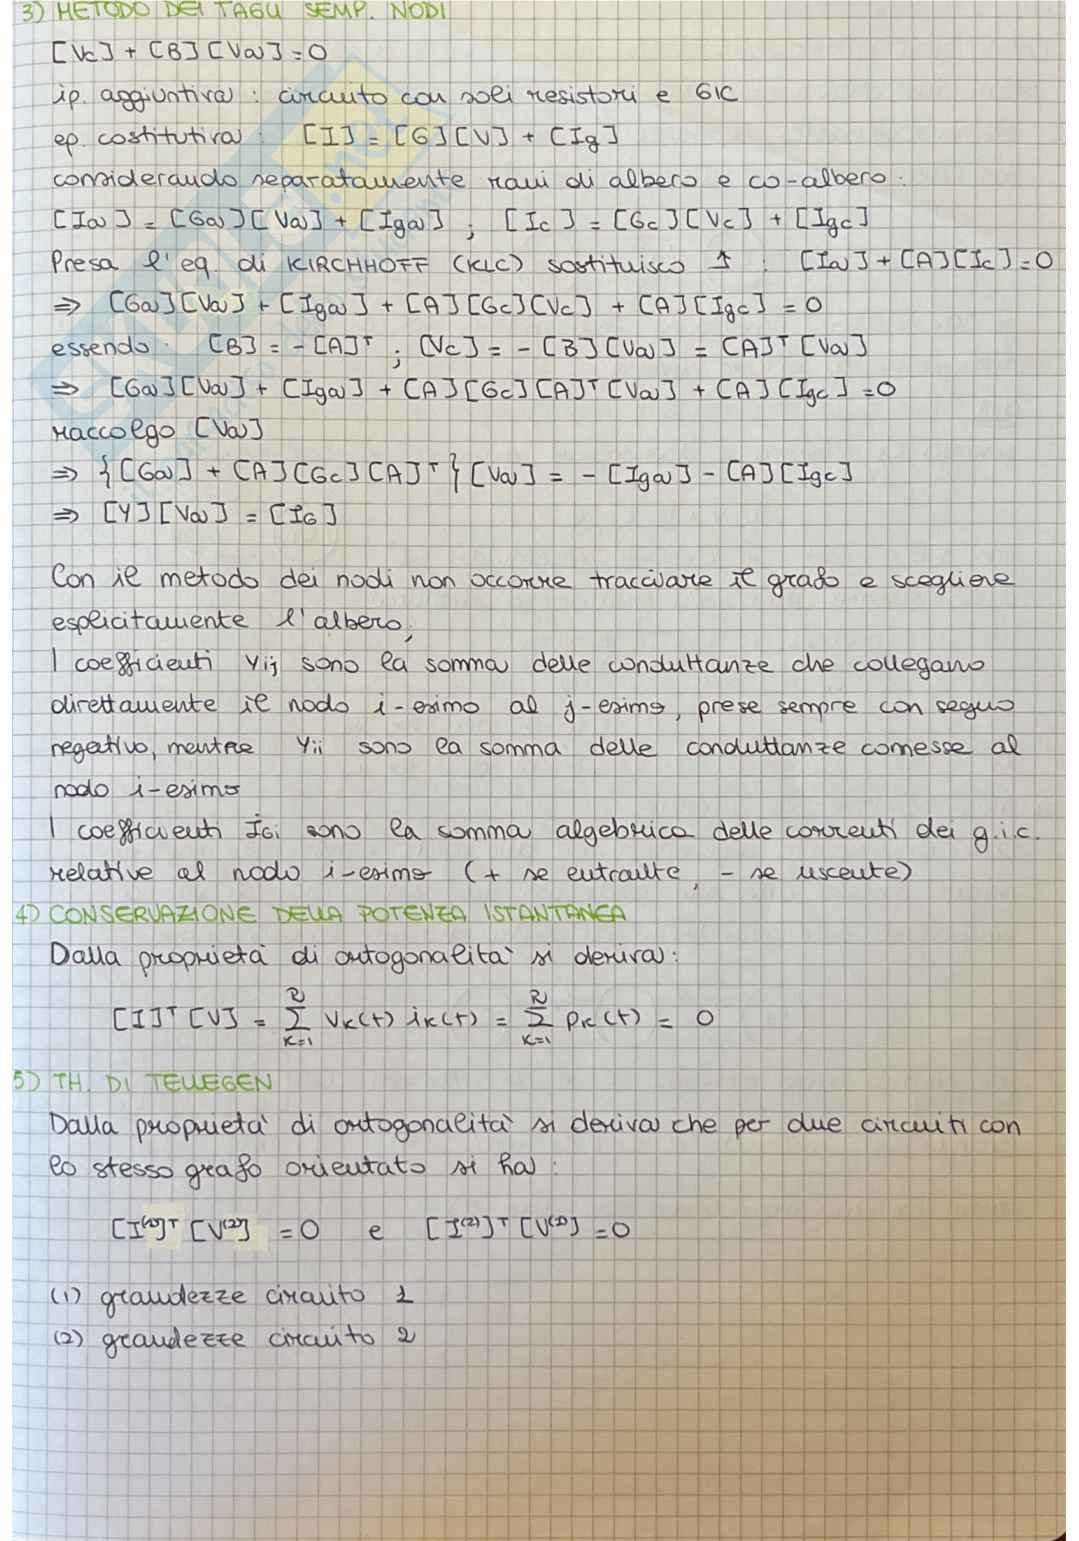 3) METODO DEI TAGLI SEMP. NODI
[Vc] + [B][Va] = 0
ip. aggiuntiva : circuito con soli resistori e GIC
eq. costitutiva : [I] = [G][V] + [Ig]
considerando separatamente rami di albero e co-albero :
[Ia] = [Ga][Va] + [Iga] ; [Ic] = [Gc][Vc] + [Igc]
Presa l'eq. di KIRCHHOFF (KLC) sostituisco ↑ : [Ia] + [A][Ic] = 0
⇒ [Ga][Va] + [Iga] + [A][Gc][Vc] + [A][Igc] = 0
essendo : [B] = -[A]ᵀ ; [Vc] = -[B][Va] = [A]ᵀ[Va]
⇒ [Ga][Va] + [Iga] + [A][Gc][A]ᵀ[Va] + [A][Igc] = 0
raccolgo [Va]
⇒ {[Ga] + [A][Gc][A]ᵀ}[Va] = -[Iga] - [A][Igc]
⇒ [Y][Va] = [IG]
Con il metodo dei nodi non occorre tracciare il grafo e scegliere
esplicitamente l'albero,
I coefficienti Yij sono la somma delle conduttanze che collegano
direttamente il nodo i-esimo al j-esimo, prese sempre con segno
negativo, mentre Yii sono la somma delle conduttanze connesse al
nodo i-esimo
I coefficienti IGi sono la somma algebrica delle correnti dei g.i.c.
relative al nodo i-esimo (+ se entrante, - se uscente)
4) CONSERVAZIONE DELLA POTENZA ISTANTANEA
Dalla proprietà di ortogonalità si deriva :
[I]ᵀ[V] = Σ(K=1, R) vK(t) iK(t) = Σ(K=1, R) pK(t) = 0
5) TH. DI TELLEGEN
Dalla proprietà di ortogonalità si deriva che per due circuiti con
lo stesso grafo orientato si ha :
[I⁽¹⁾]ᵀ [V⁽²⁾] = 0 e [I⁽²⁾]ᵀ [V⁽¹⁾] = 0
(1) grandezze circuito 1
(2) grandezze circuito 2